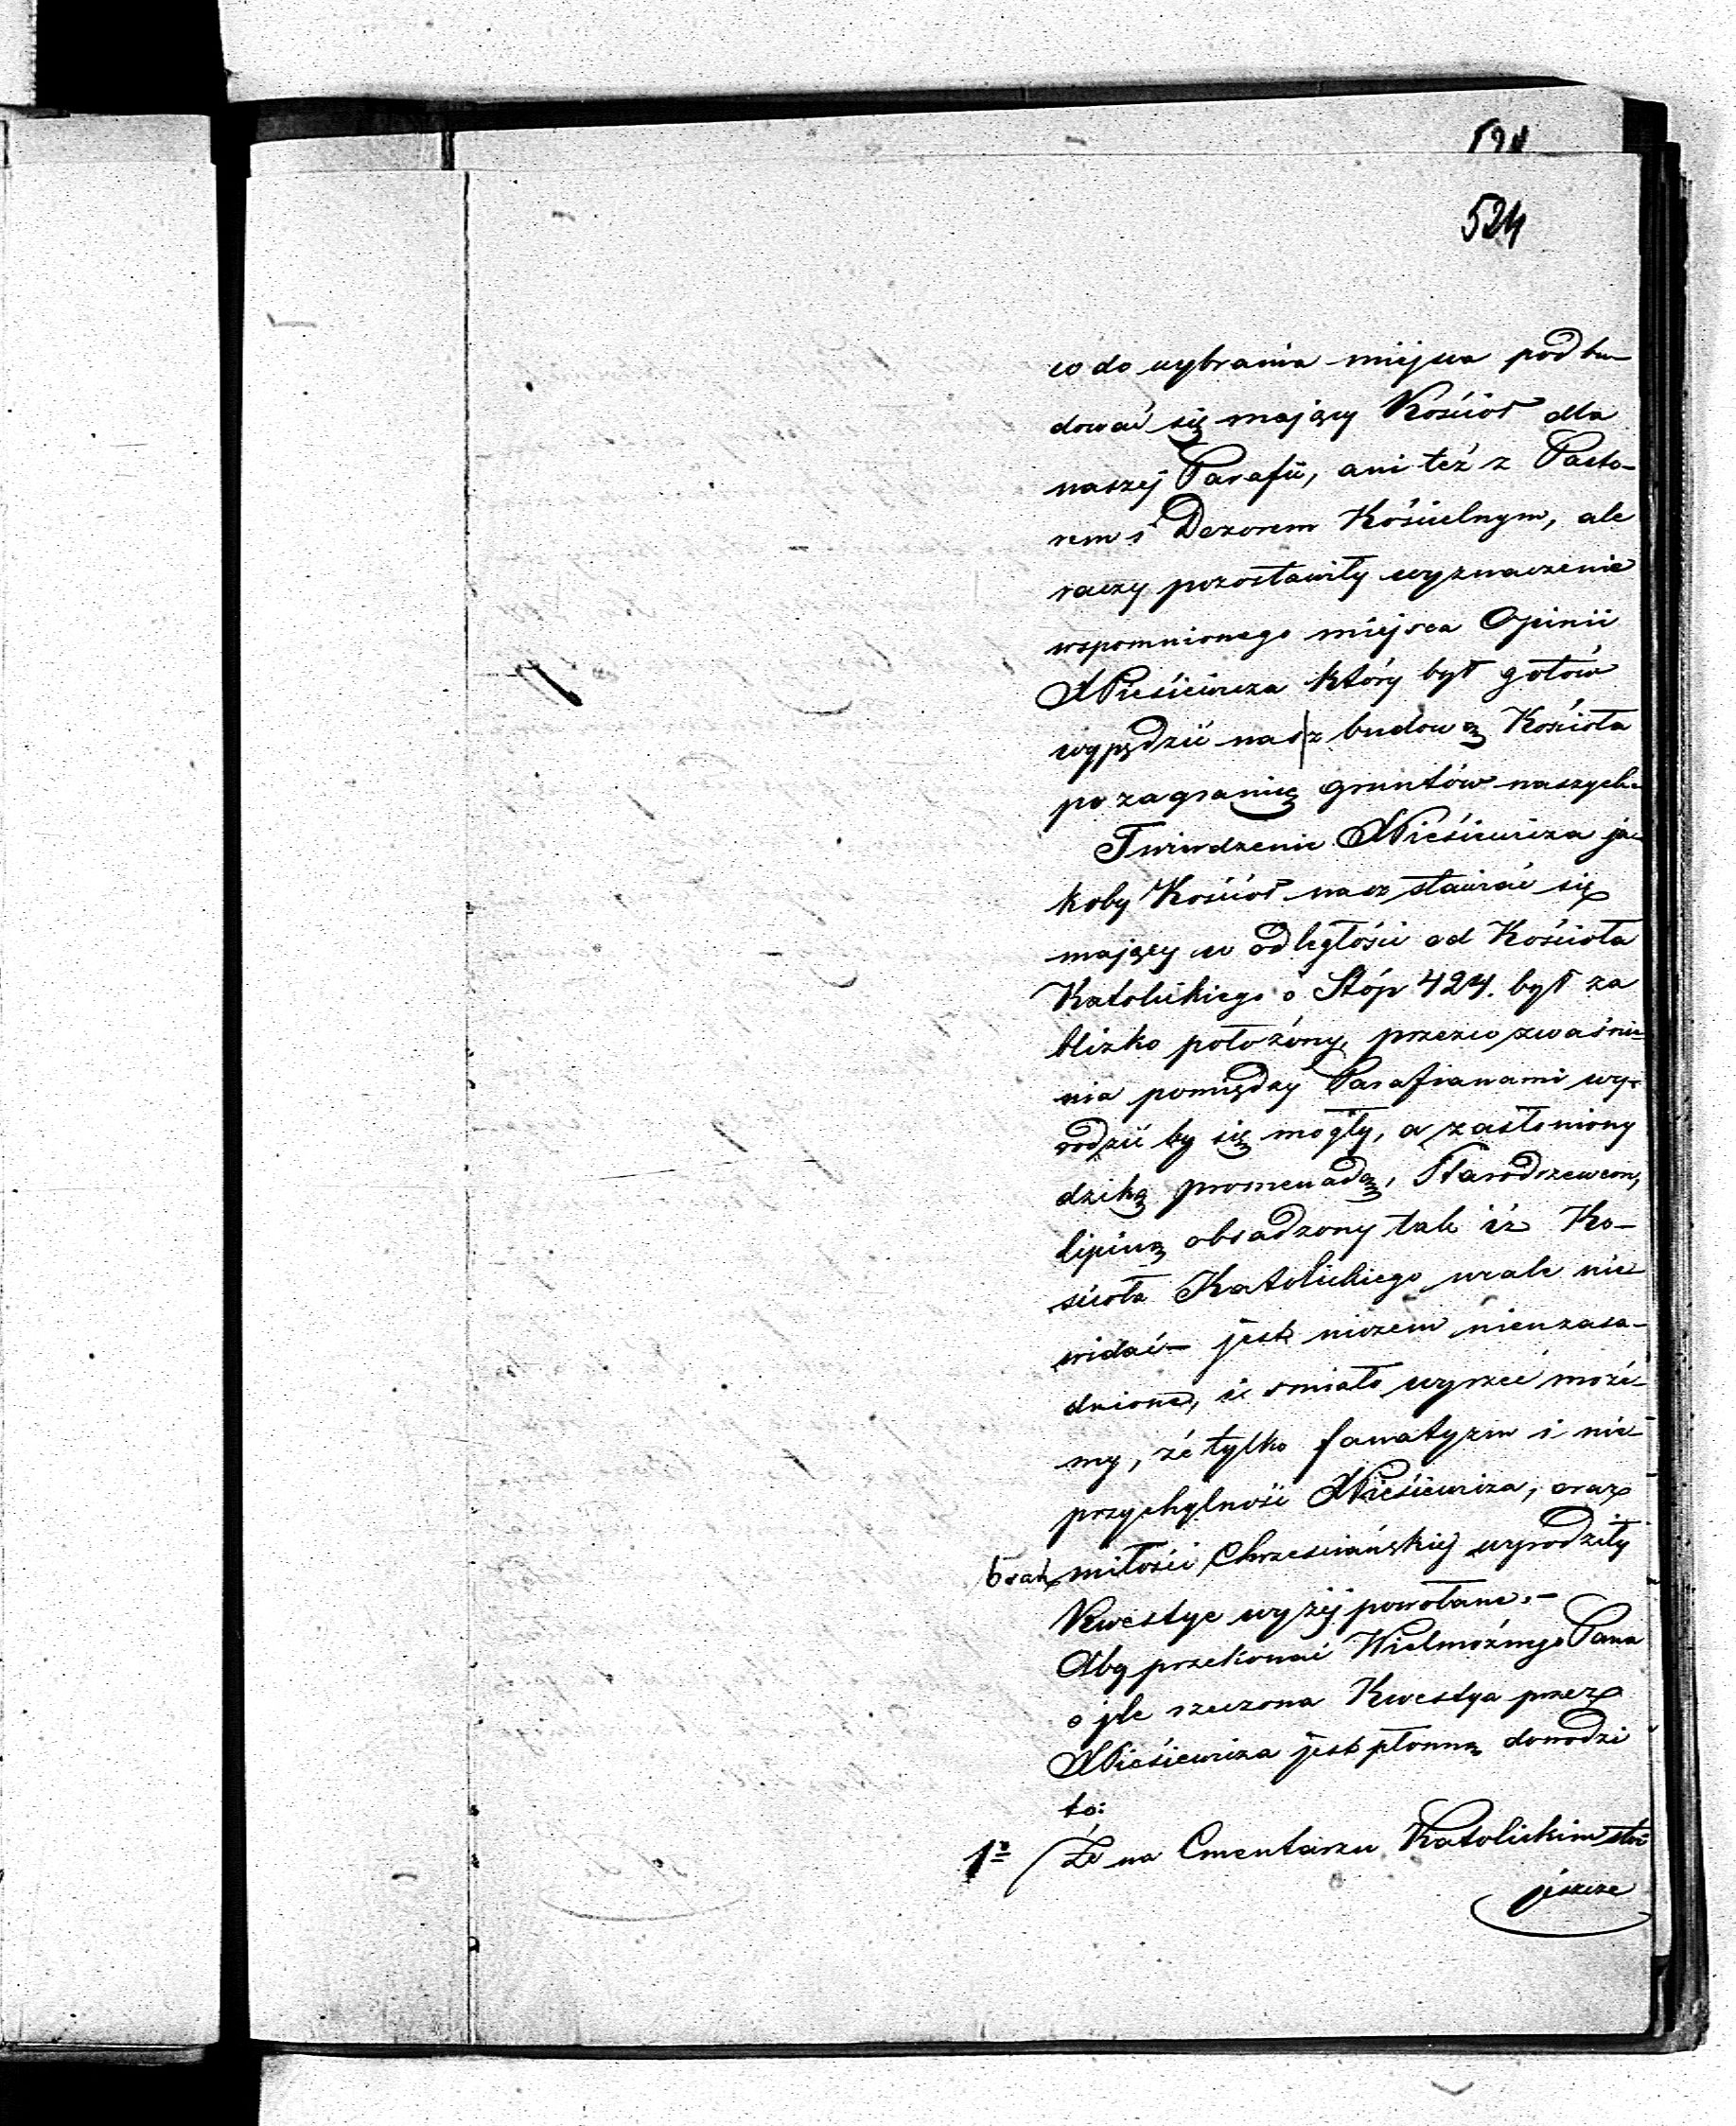 524
co do wybrania miejsca pod bu-
dować się mający Kościoł dla
naszej Parafii, ani też z Pasto-
rem i Dozorem Kościelnym, ale
raczy pozostawiły wyznaczenie
wspomnionego miejsca Opinii
który był gotów
wypędzić nas z budową Kościoła
po zagranicę gruntów naszych.
Twierdzenie ja-
koby Kościoł nasz stawiać się
mający w odległości od Kościoła
Katolickiego o Stóp 424. był za
blizko położony, przezco zwaśnie-
nia pomiędzy Parafianami wy-
rodzić by się mogły, a zasłoniony
dziką promenadą, Starodrzewem,
lipiną obsadzony tak iż Ko-
ścioła Katolickiego wcale nie
widać – jest niczem nieuzasa-
dnione, i śmiało wyrzec może-
my, że tylko fanatyzm i nie
przychylność oraz
brak miłości Chrześciańskiej wyrodziły
Kwestye wyżéj powołane.–
Aby przekonać Wielmożnego Pana
o jle rzeczona Kwestya przez
jest płonną dowodzi
to:
1º Że na Cmentarzu Katolickim stoi
jeszcze